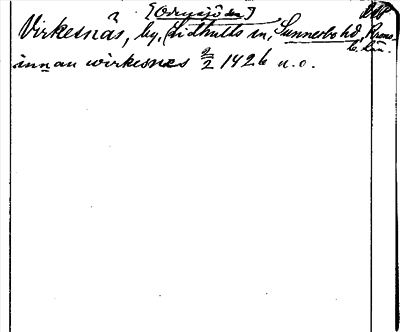 [Odensjö sn]
Virkesnäs, by, Lidhults sn, Sunnerbo hd, Kronob. län.
innan wirkesnes 2/2 1426 u.o.